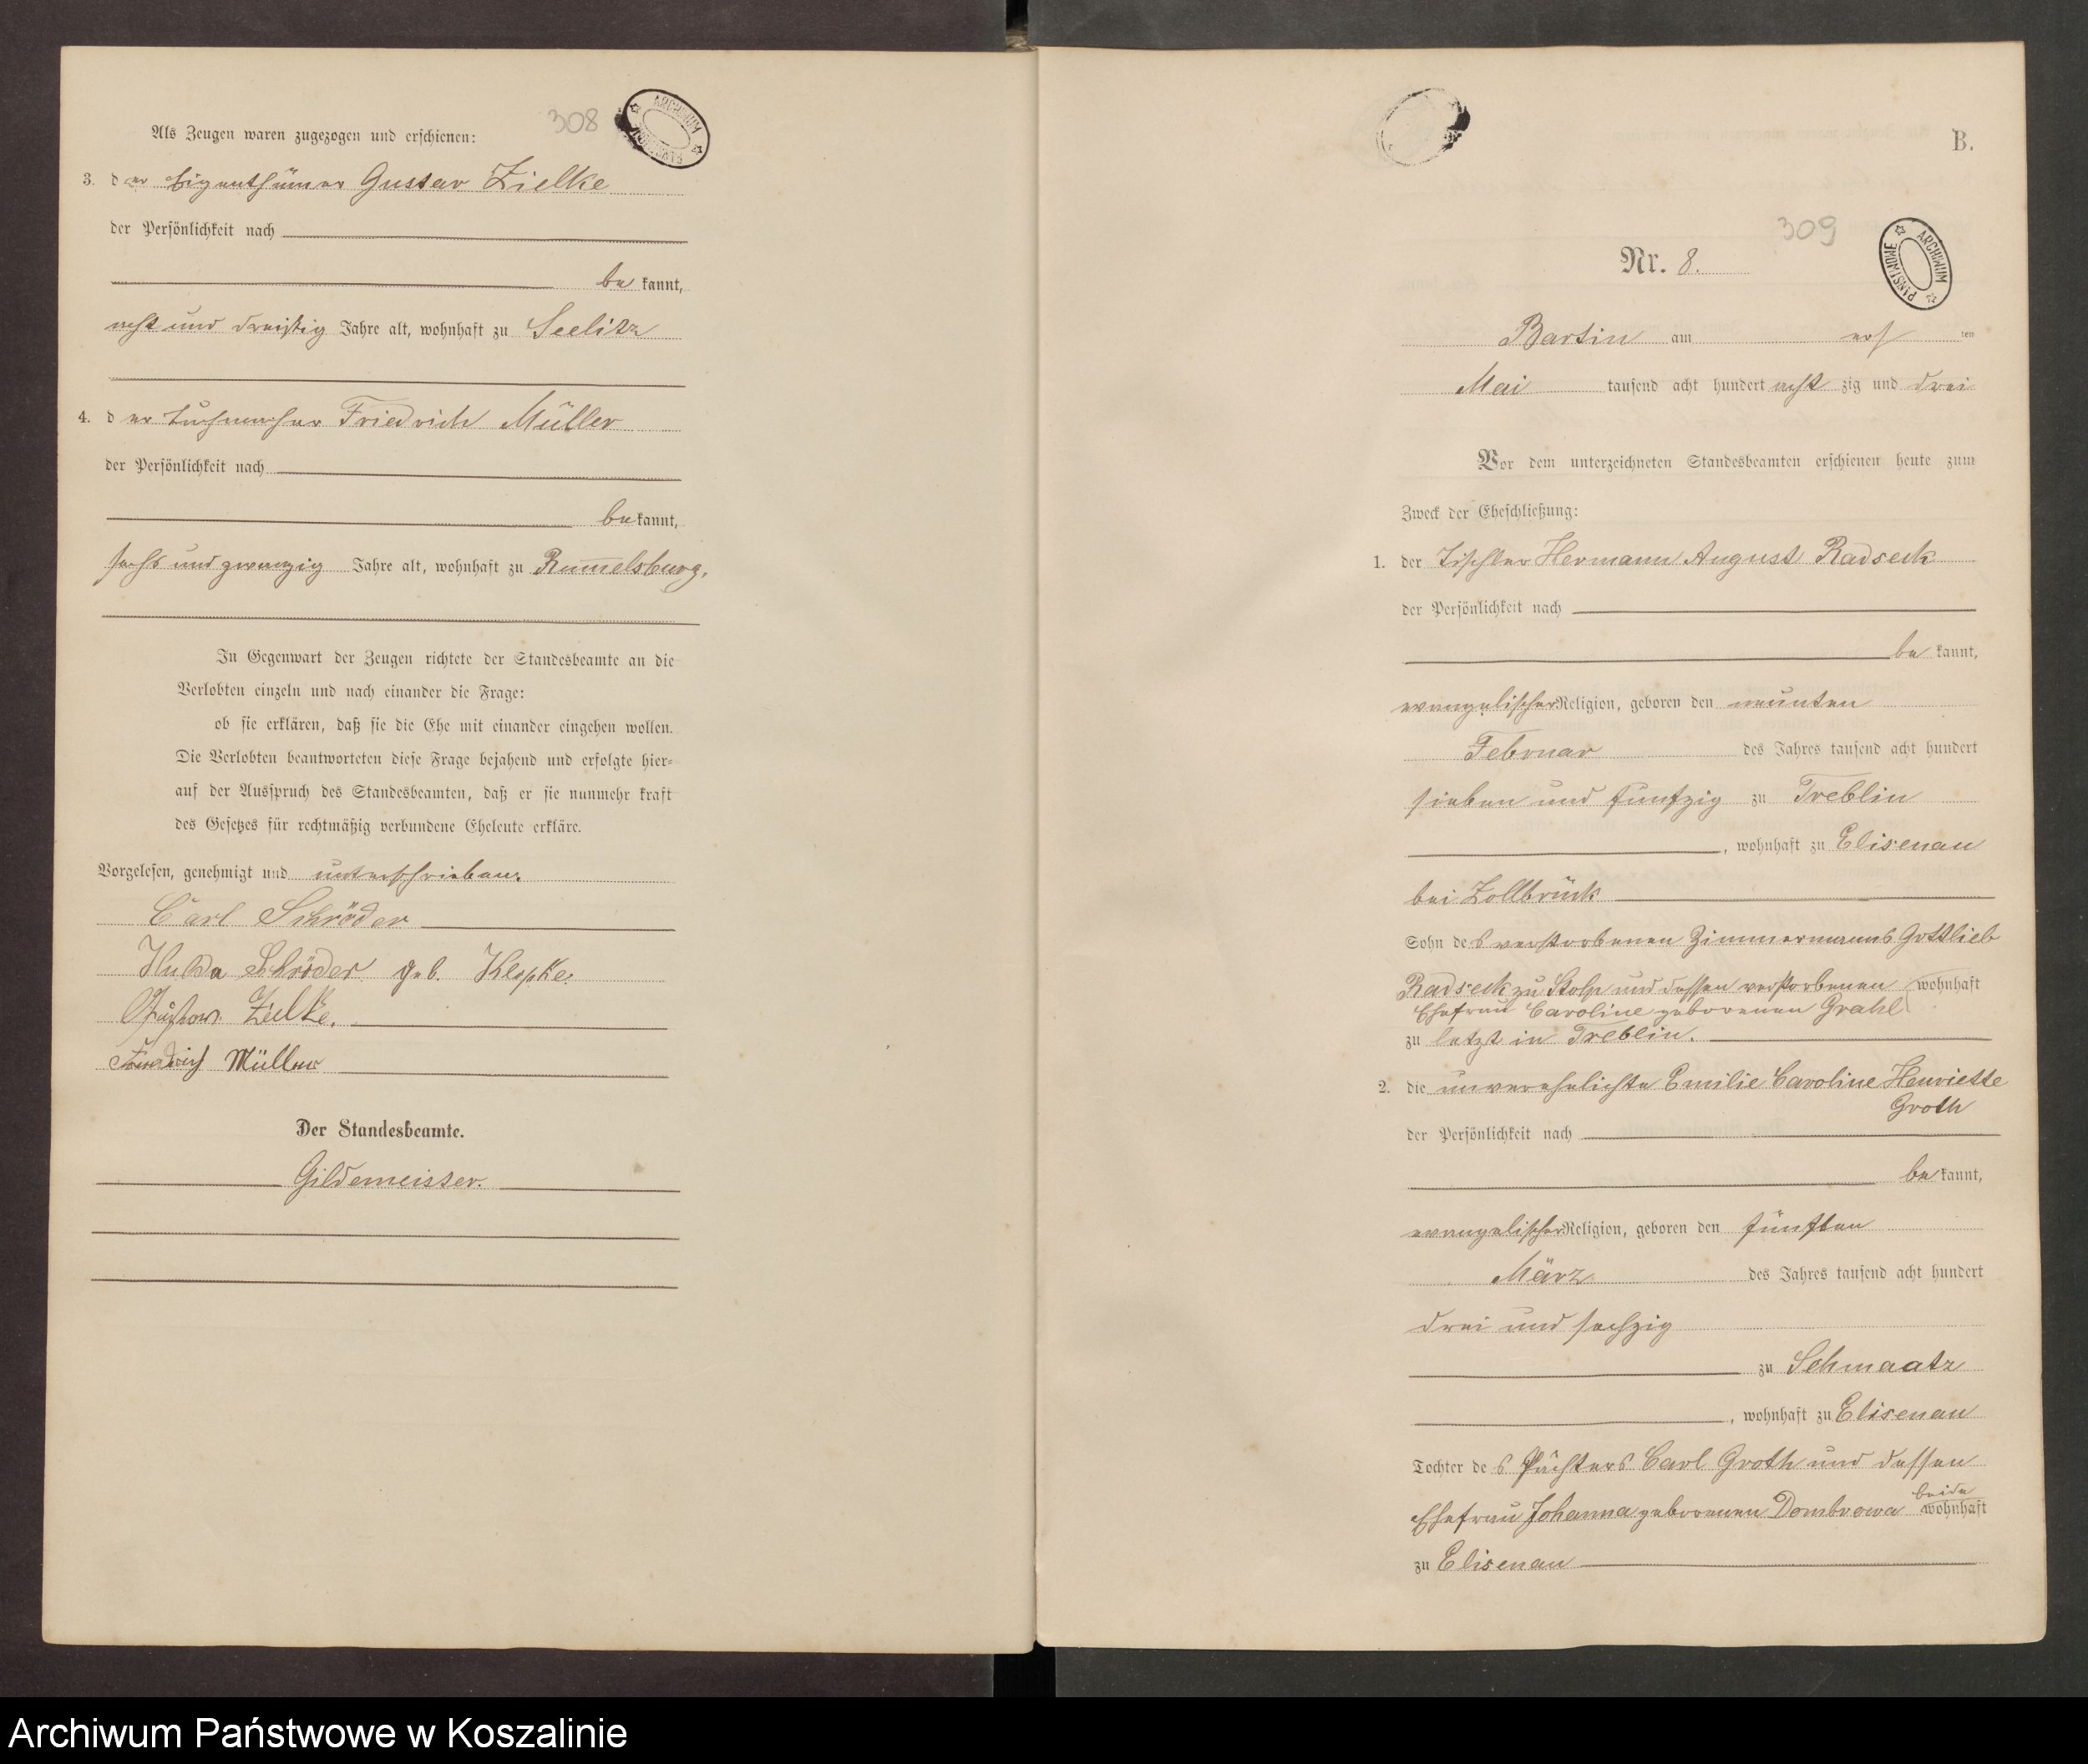 308
ARCHIWUM PAŃSTWOWE
Als Zeugen waren zugezogen und erschienen:
3. der Eigenthümer Gustav Zielke
der Persönlichkeit nach
bekannt,
acht und dreißig Jahre alt, wohnhaft zu Seelitz
4. der Tuchmacher Friedrich Müller
der Persönlichkeit nach
bekannt,
sechs und zwanzig Jahre alt, wohnhaft zu Rummelsburg,
In Gegenwart der Zeugen richtete der Standesbeamte an die
Verlobten einzeln und nach einander die Frage:
ob sie erklären, daß sie die Ehe mit einander eingehen wollen.
Die Verlobten beantworteten diese Frage bejahend und erfolgte hier-
auf der Ausspruch des Standesbeamten, daß er sie nunmehr kraft
des Gesetzes für rechtmäßig verbundene Eheleute erkläre.
Vorgelesen, genehmigt und unterschrieben.
Carl Schröder
Hulda Schröder geb. Klopke.
Gustav Zielke.
Friedrich Müller
Der Standesbeamte.
Gildemeister.
B.
309
ARCHIWUM PAŃSTWOWE
Nr. 8.
Bartin am ach ten
Mai tausend acht hundert acht zig und drei
Vor dem unterzeichneten Standesbeamten erschienen heute zum
Zweck der Eheschließung:
1. der Tischler Hermann August Radseck
der Persönlichkeit nach
bekannt,
evangelischer Religion, geboren den neunten
Februar des Jahres tausend acht hundert
sieben und fünfzig zu Treblin
, wohnhaft zu Elisenau
bei Zollbrück
Sohn des verstorbenen Zimmermanns Gottlieb
Radseck zu Stolp und dessen verstorbenen wohnhaft
Ehefrau Caroline geborenen Grahl
zu letzt in Treblin.
2. die unverehelichte Emilie Caroline Henriette
Groth
der Persönlichkeit nach
bekannt,
evangelischer Religion, geboren den fünften
März des Jahres tausend acht hundert
drei und sechzig
zu Schmaatz
, wohnhaft zu Elisenau
Tochter des Pächters Carl Groth und dessen
Ehefrau Johanna geborenen Dombrowa beide wohnhaft
zu Elisenau
Archiwum Państwowe w Koszalinie